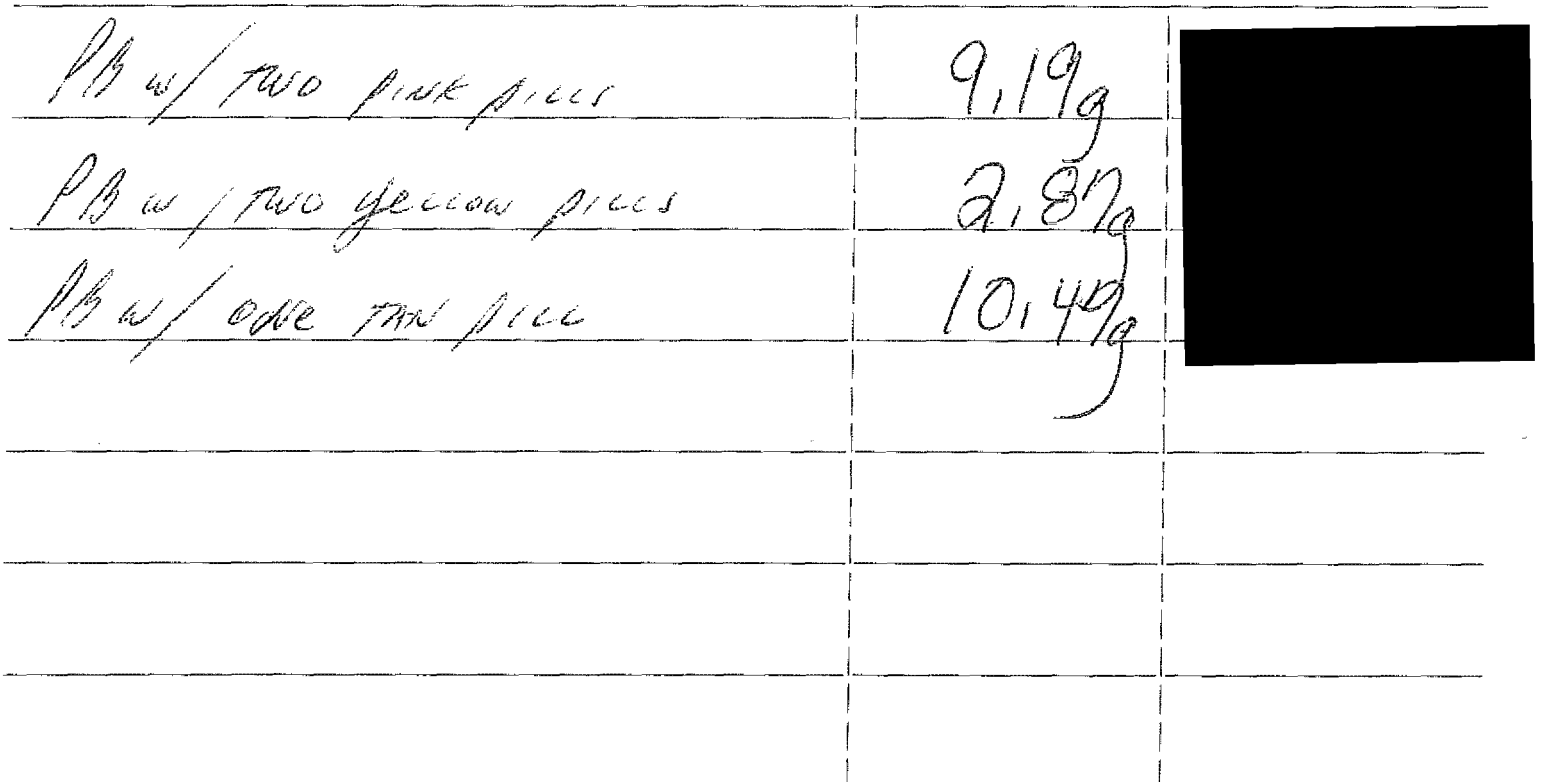 PB w/ TWO PINK PILLS 9.19g
PB w/ TWO YELLOW PILLS 2.87g
PB w/ ONE TAN PILL 10.49g